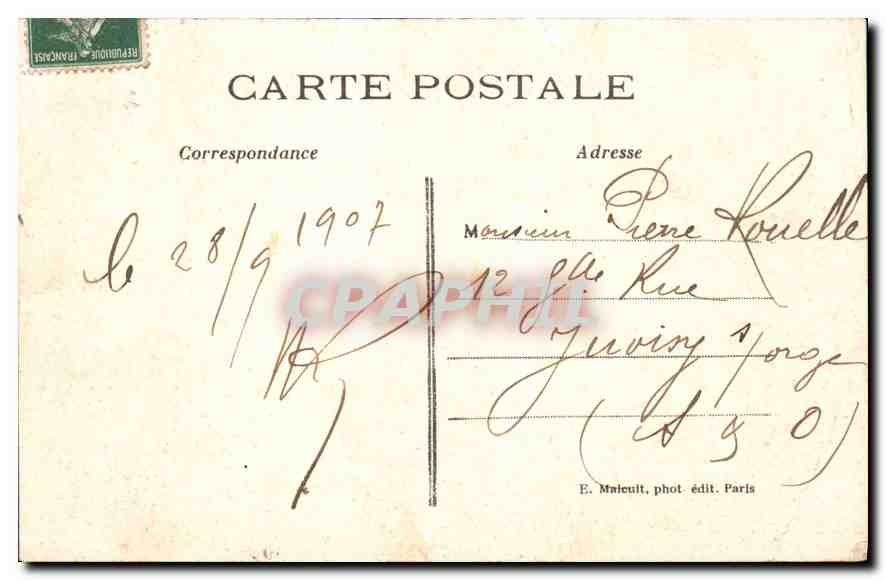 REPUBLIQUE FRANÇAISE
CARTE POSTALE
Correspondance
le 28/9 1907
Adresse
Monsieur Pierre Rouelle
12 gde Rue
Juvisy s/orge
(S & O)
E. Malcuit, phot édit. Paris
CPAPHIL